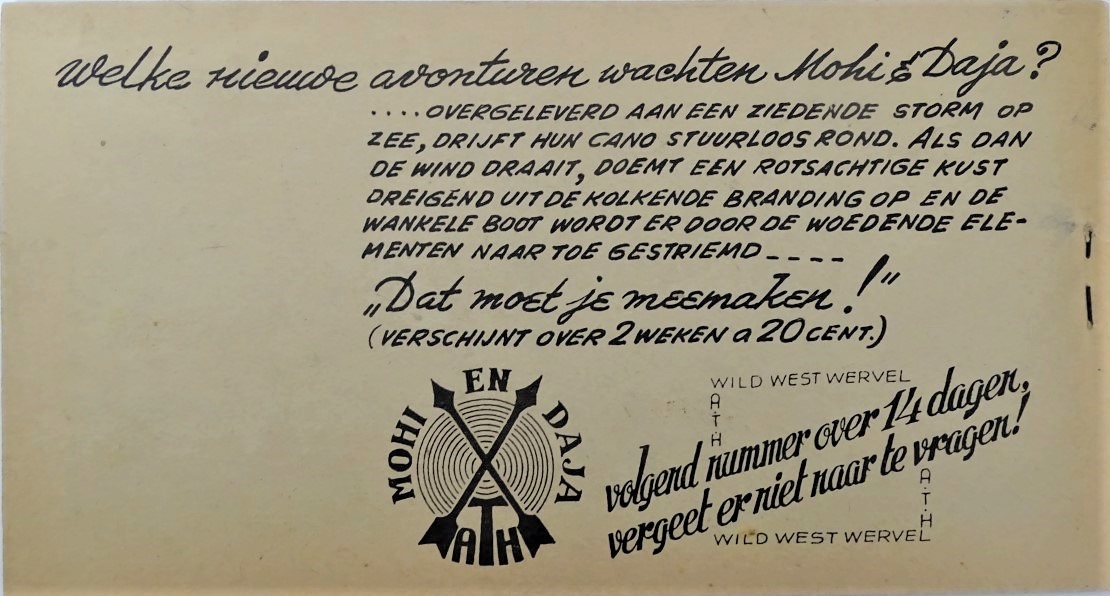 Welke nieuwe avonturen wachten Mohi & Daja?
....OVERGELEVERD AAN EEN ZIEDENDE STORM OP
ZEE, DRIJFT HUN CANO STUURLOOS ROND. ALS DAN
DE WIND DRAAIT, DOEMT EEN ROTSACHTIGE KUST
DREIGEND UIT DE KOLKENDE BRANDING OP EN DE
WANKELE BOOT WORDT ER DOOR DE WOEDENDE ELE-
MENTEN NAAR TOE GESTRIEMD----
„Dat moet je meemaken!"
(VERSCHIJNT OVER 2 WEKEN a 20 CENT.)
MOHI EN DAJA
ATH
WILD WEST WERVEL
A.T.H
volgend nummer over 14 dagen,
vergeet er niet naar te vragen!
A.T.H
WILD WEST WERVEL